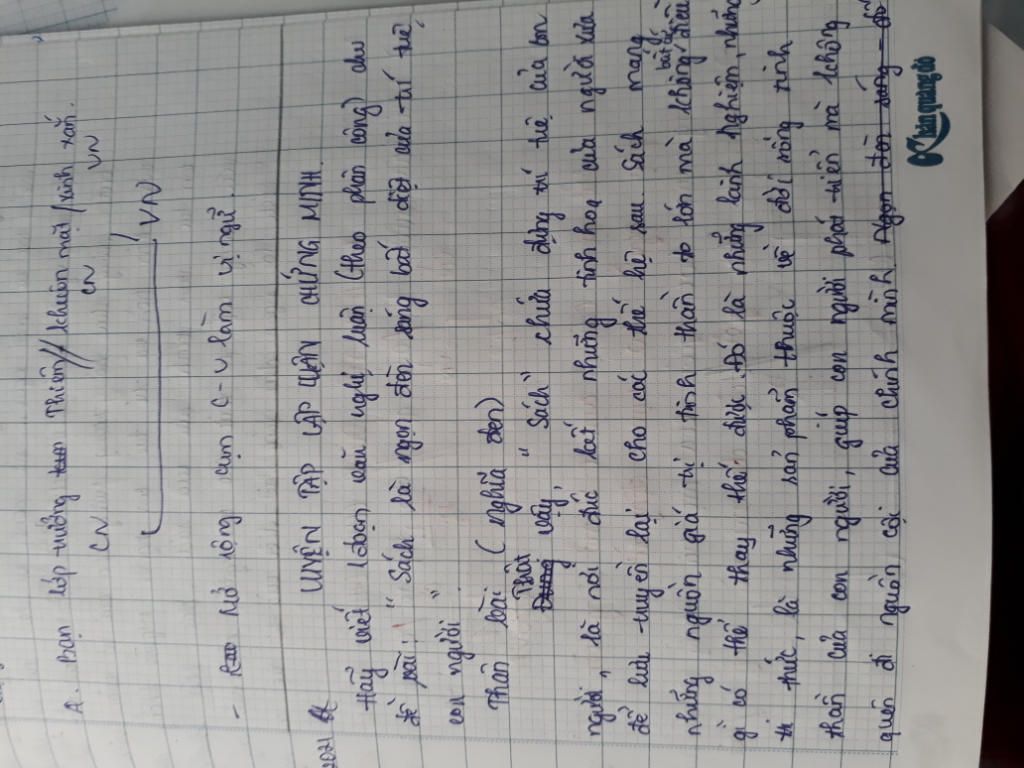 A. Bạn lớp trưởng Thiên // khuôn mặt / xinh xắn.
CN CN VN
CN VN
- Mở rộng cụm C-V làm vị ngữ.
LUYỆN TẬP LẬP LUẬN CHỨNG MINH.
Hãy viết 1 đoạn văn nghị luận (theo phân công) cho
đề bài: "Sách là ngọn đèn sáng bất diệt của trí tuệ
con người"
Thân bài: (nghĩa đen)
Thật vậy, "Sách" chứa đựng trí tuệ của con
người, là nơi đúc kết những tinh hoa của người xưa
để lưu truyền lại cho các thế hệ sau. Sách mang
những nguồn giá trị tinh thần to lớn mà không bất cứ điều
gì có thể thay thế được. Đó là những kinh nghiệm, những
tri thức, là những sản phẩm thuộc về đời sống tinh
thần của con người, giúp con người phát triển mà không
quên đi nguồn cội của chính mình. Ngọn đèn sáng
Khánh quang đỏ